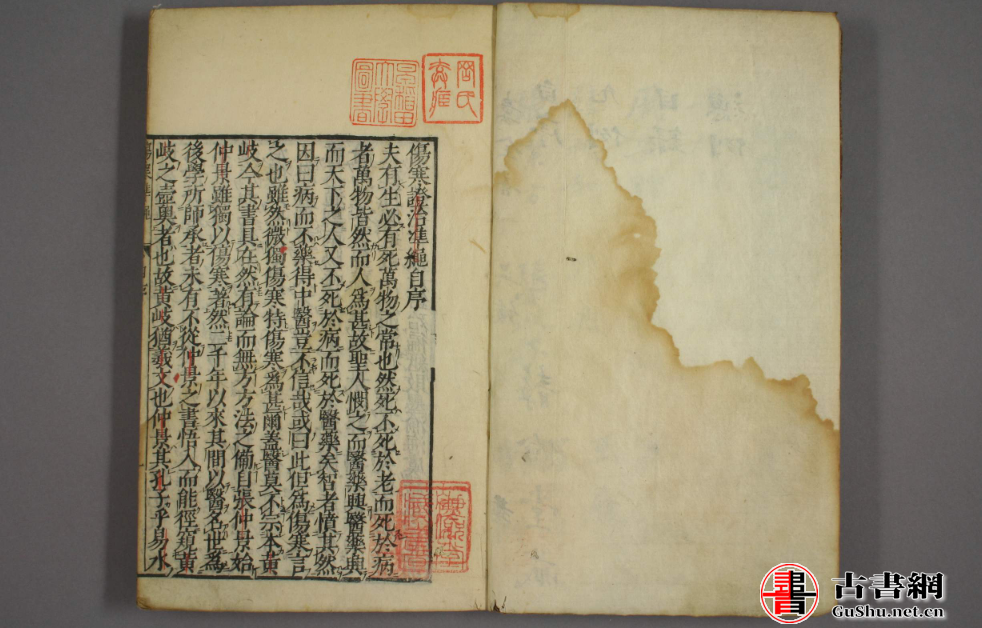 傷寒證治準繩自序
夫有生必有死萬物之常也然死不死於老而死於病
者萬物皆然而人為甚故聖人憫之而醫藥興醫藥興
而天下之人又不死於病而死於醫藥矣智者憤其然
因曰病而不藥得中醫豈不信哉或曰此但為傷寒言
之也雖然微獨傷寒特傷寒為甚爾蓋醫莫不宗本黃
岐今其書具在然有論而無方方法之備自張仲景始
仲景雖獨以傷寒著然二千年以來其間以醫名世為
後學所師承者未有不從仲景之書悟入而能徑窺黃
岐之壺奧者也故黃岐猶羲文也仲景其孔子乎易水
岡氏
圖書
古書網
GuShu.net.cn